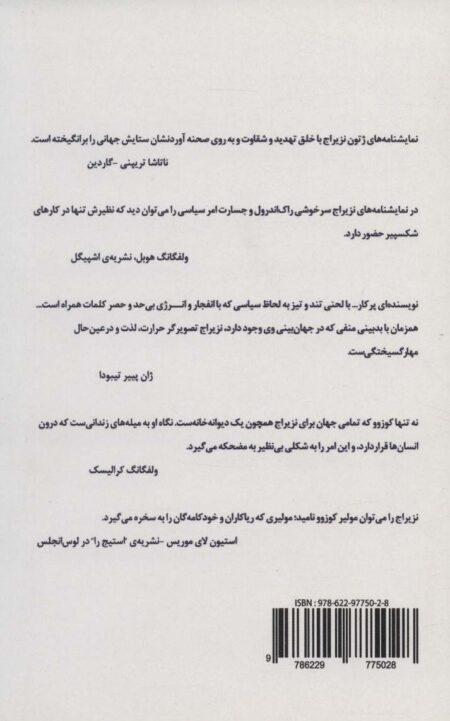 نمایشنامه‌های ژتون نزیراج با خلق تهدید و شقاوت و به روی صحنه آوردنشان ستایش جهانی را برانگیخته است.
ناتاشا تریپنی -گاردین
در نمایشنامه‌های نزیراج سرخوشی راک‌اندرول و جسارت امر سیاسی را می‌توان دید که نظیرش تنها در کارهای
شکسپیر حضور دارد.
ولفگانگ هوبل، نشریه‌ی اشپیگل
نویسنده‌ای پر کار... با لحنی تند و تیز به لحاظ سیاسی که با انفجار و انرژی بی‌حد و حصر کلمات همراه است...
همزمان با بدبینی منفی که در جهان‌بینی وی وجود دارد، نزیراج تصویرگر حرارت، لذت و در عین حال
مهارگسیختگی‌ست.
ژان پییر تیبودا
نه تنها کوزوو که تمامی جهان برای نزیراج همچون یک دیوانه‌خانه‌ست. نگاه او به میله‌های زندانی‌ست که درون
انسان‌ها قرار دارد، و این امر را به شکلی بی‌نظیر به مضحکه می‌گیرد.
ولفگانگ کرالیسک
نزیراج را می‌توان مولیر کوزوو نامید؛ مولیری که ریاکاران و خودکامه‌گان را به سخره می‌گیرد.
استیون لای موریس -نشریه‌ی "استیج را" در لوس‌انجلس
ISBN : 978-622-97750-2-8
9 786229 775028